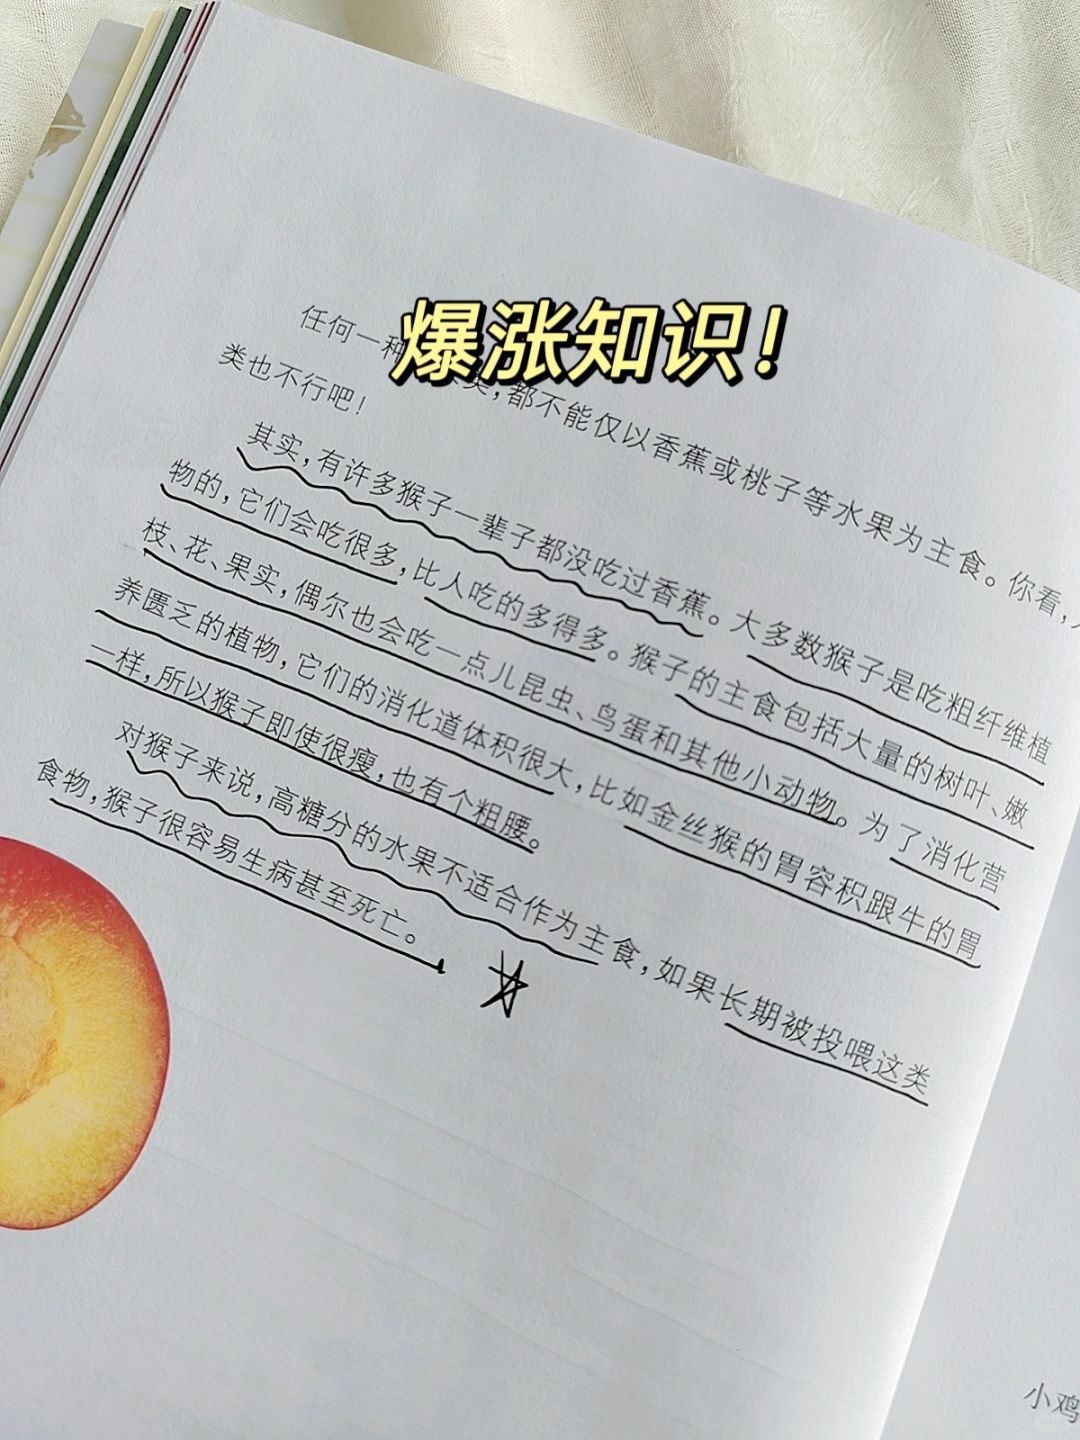 爆涨知识！
任何一种类，都不能仅以香蕉或桃子等水果为主食。你看，
类也不行吧！
其实，有许多猴子一辈子都没吃过香蕉。大多数猴子是吃粗纤维植
物的，它们会吃很多，比人吃的多得多。猴子的主食包括大量的树叶、嫩
枝、花、果实，偶尔也会吃一点儿昆虫、鸟蛋和其他小动物。为了消化营
养匮乏的植物，它们的消化道体积很大，比如金丝猴的胃容积跟牛的胃
一样，所以猴子即使很瘦，也有个粗腰。
对猴子来说，高糖分的水果不适合作为主食，如果长期被投喂这类
食物，猴子很容易生病甚至死亡。
小鸡